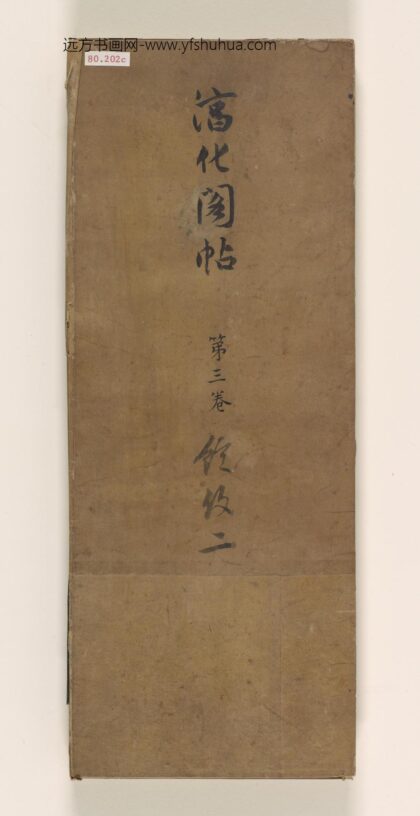 远方书画网-www.yfshuhua.com
80.202c
淳化閣帖
第三卷
二